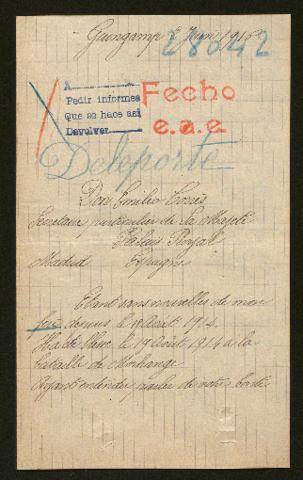 Guingamp 8 Juin 1915
28642
A
Pedir informes
Que se hace así
Devolver
Fecho
e.a.e.
Deleporte
Don Emilio Torrès
Secretaire particulier de Sa Majesté
Palais Royal
Madrid Espagne
Etant sans nouvelles de mon
fils depuis le 18 Août 1914.
le 19 Août 1914 a la
bataille de Morhange
Ayant entendu parler de votre bonté